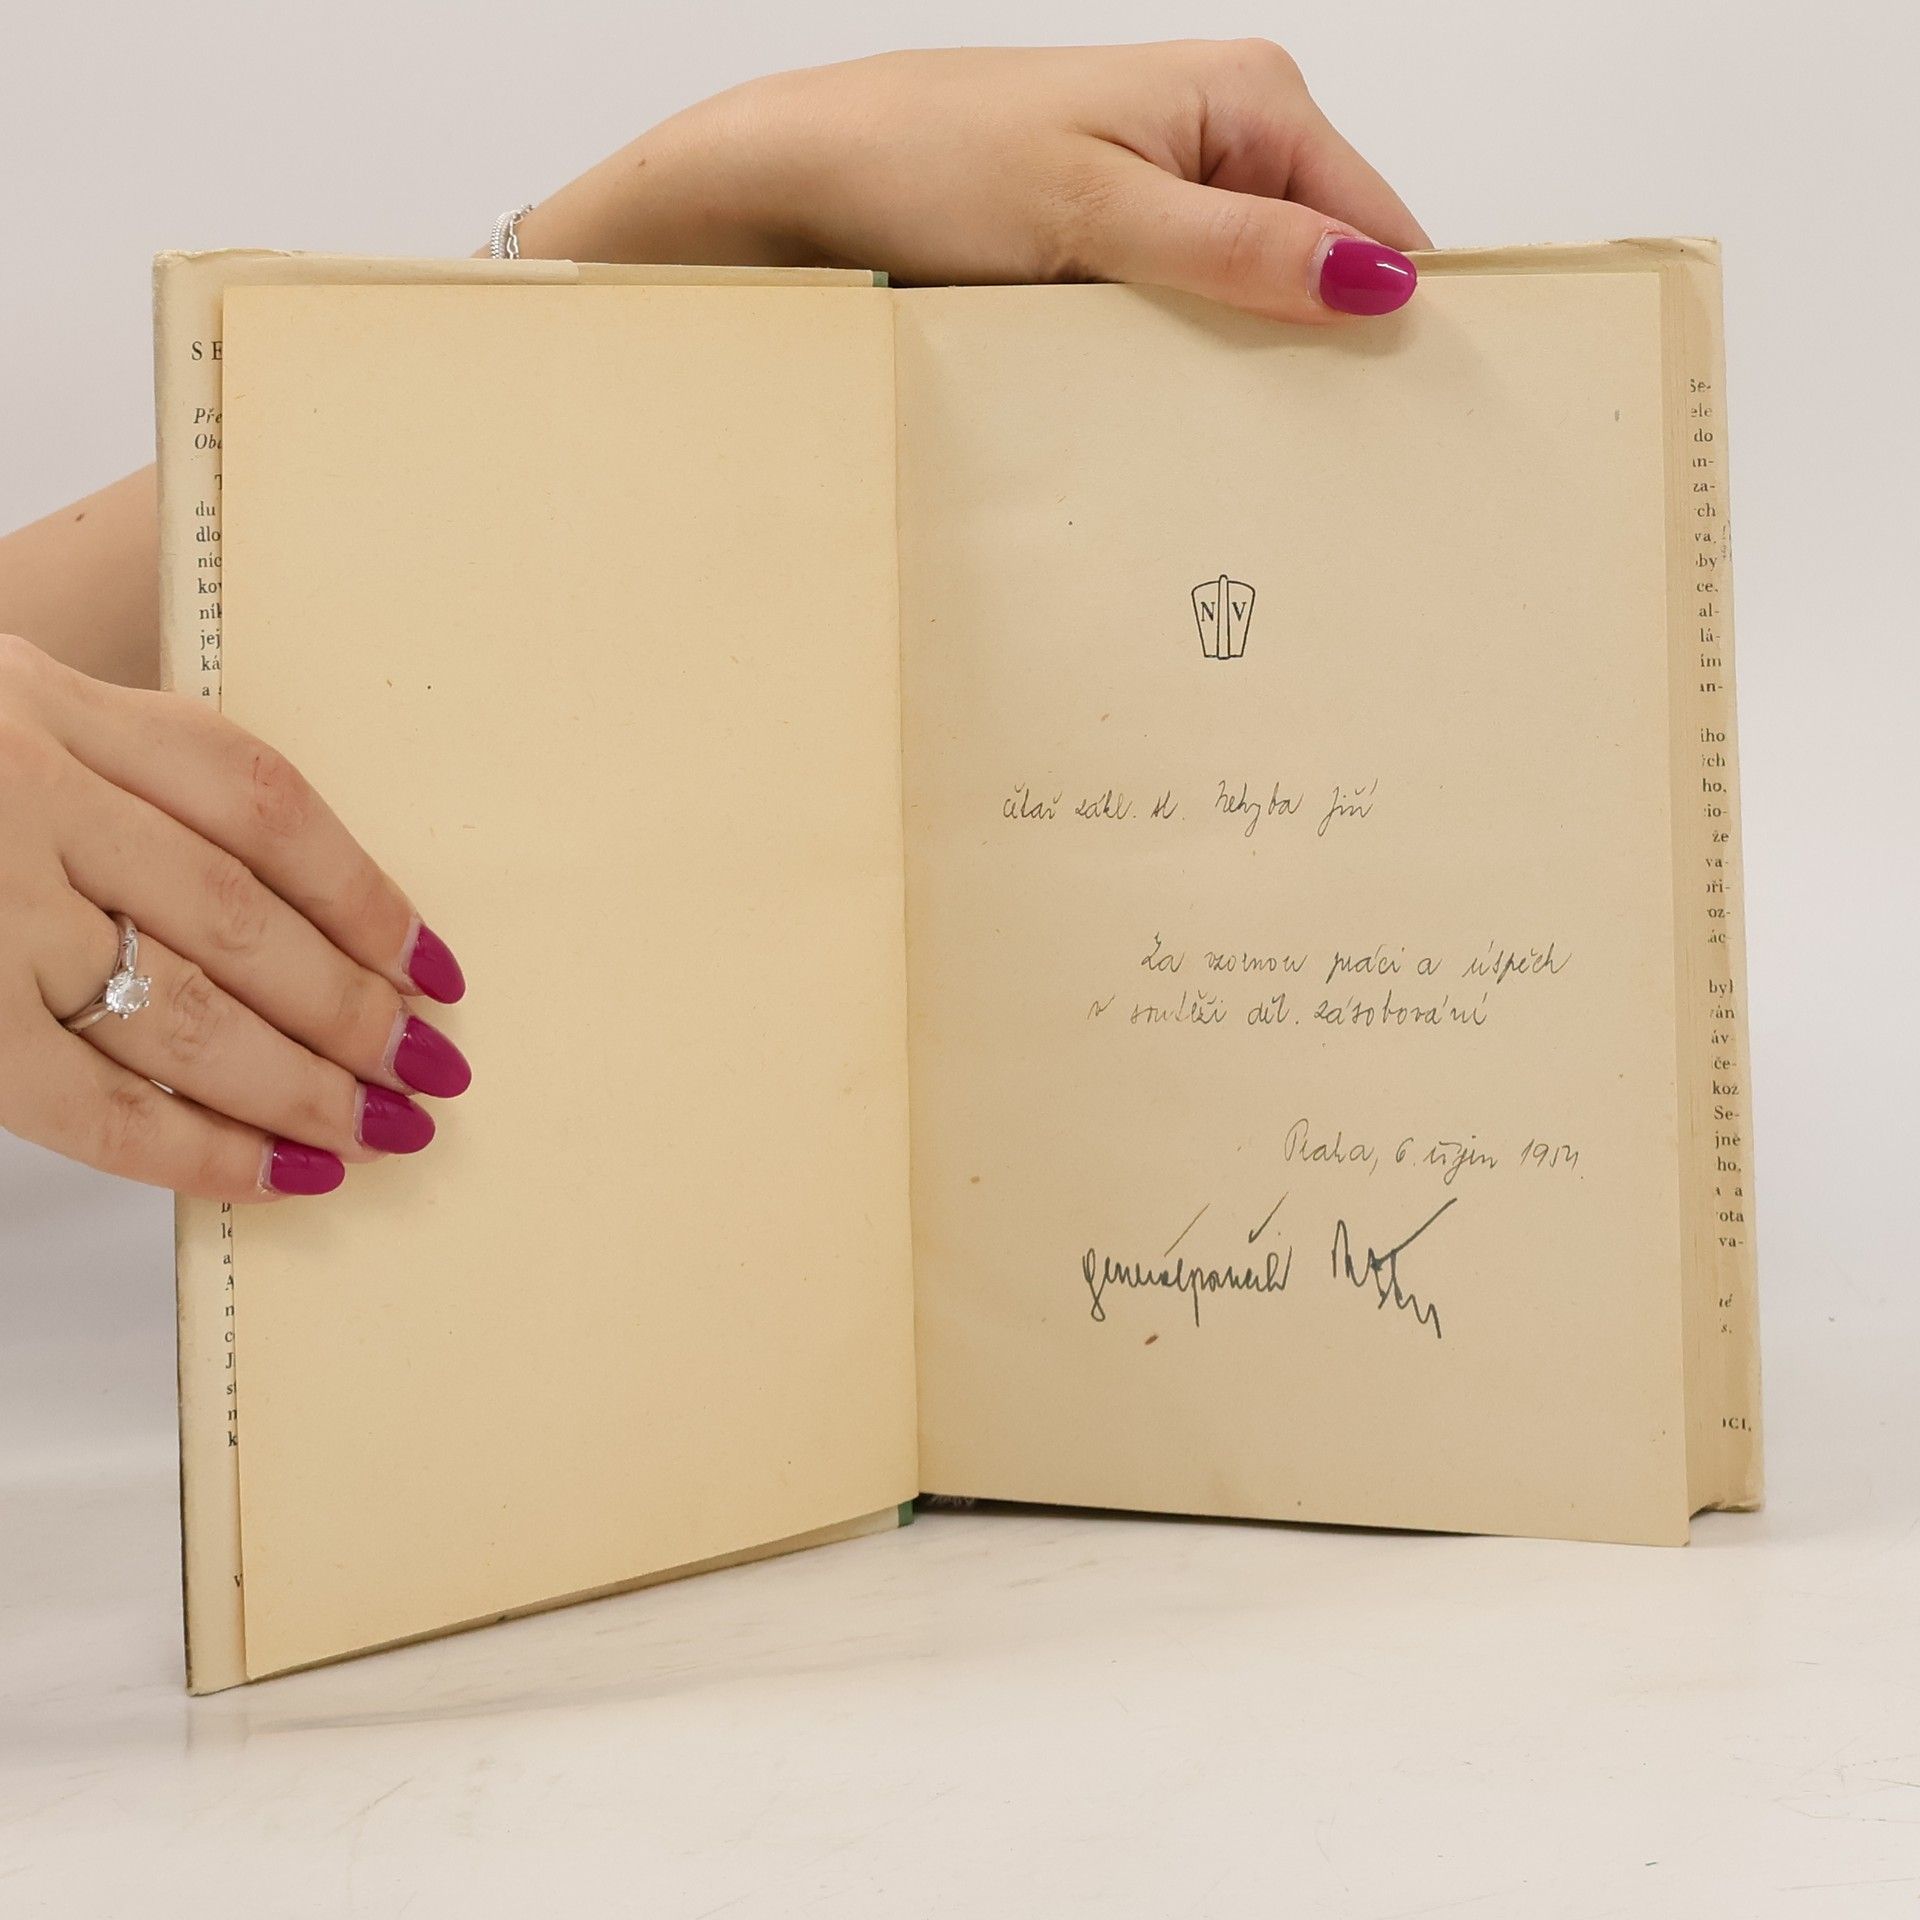 SE
Pře
Obe
T
du
dlo
níc
kov
ník
jej
ká
a s
le
a
A
n
c
J
st
n
k
v
N V
četař zákl. sl. Nehyba Jiří
Za vzornou práci a úspěch
v soutěži děl. zásobování
Praha, 6. říjen 1954.
generálporučík
Se-
ele
do
an-
za-
ch
va,
by
ce,
al-
lá-
ím
an-
ího
ích
ho,
cio-
že
va-
při-
roz-
ác-
byl
rán
áv-
če-
koz
Se-
jně
ho,
a a
ota
va-
né
s.
OCI,